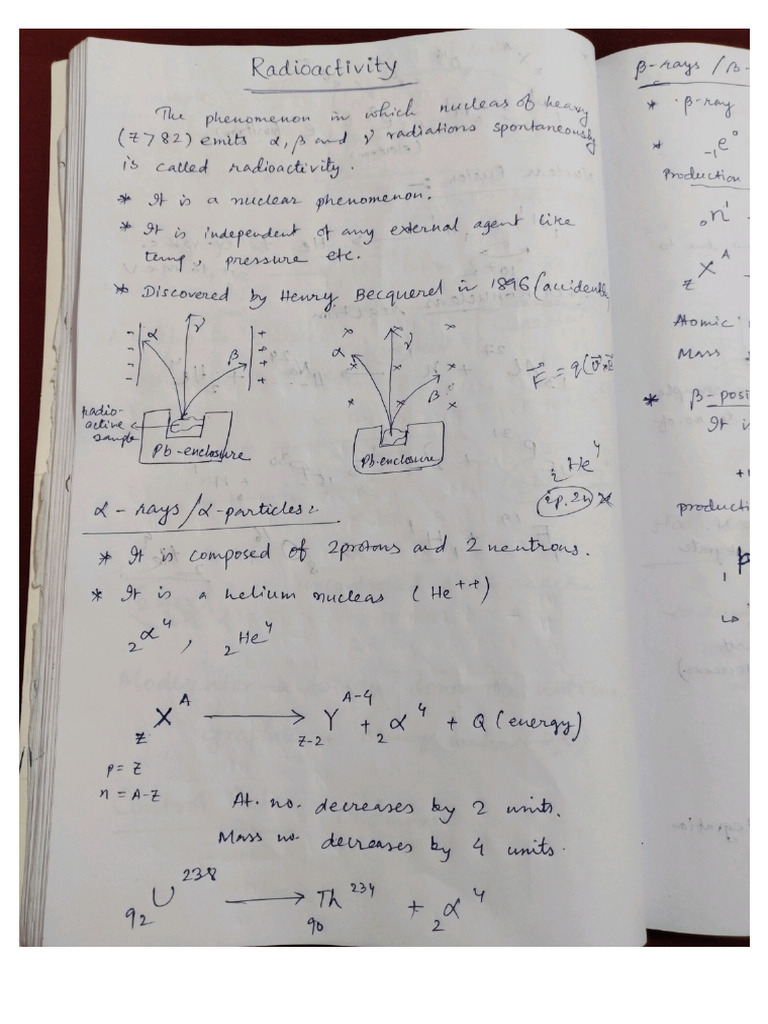 Radioactivity
The phenomenon in which nucleas of heavy
(Z>82) emits α, β and γ radiations spontaneously
is called radioactivity.
* It is a nuclear phenomenon.
* It is independent of any external agent like
temp, pressure etc.
* Discovered by Henry Becquerel in 1896 (accidentl
α γ β
α γ β
F = q(v×B
radio-
active
sample
Pb-enclosure
Pb-enclosure
₂He⁴
α-rays/α-particles:
* It is composed of 2protons and 2 neutrons.
* It is a helium nucleas (He⁺⁺)
₂α⁴, ₂He⁴
zX^A ⟶ z-2Y^A-4 + ₂α⁴ + Q (energy)
p = Z
n = A-Z
At. no. decreases by 2 units.
Mass no. decreases by 4 units.
₉₂U²³⁸ ⟶ ₉₀Th²³⁴ + ₂α⁴
β-rays / β-
* β-ray
* ₋₁e⁰
Production
₀n¹
zX^A
Atomic
Mass
* β-posi
It i
+1
producti
₁p